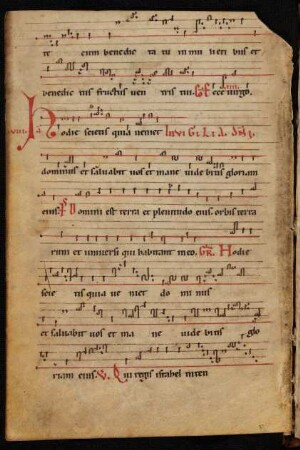 te cum benedic ta tu in mu li eri bus et
benedic tus fructus ven tris tui. Co. Ecce uirgo.
Hodie scietis quia ueniet IN VIGILIA DNI.
dominus et saluabit uos et mane uidebitis gloriam
eius. Ps Domini est terra et plenitudo eius orbis terra
rum et uniuersi qui habitant in eo. GR. Hodie
scie tis quia ue niet do mi nus
et saluabit uos et ma ne uide bitis glo
riam eius. V. Qui regis israhel inten